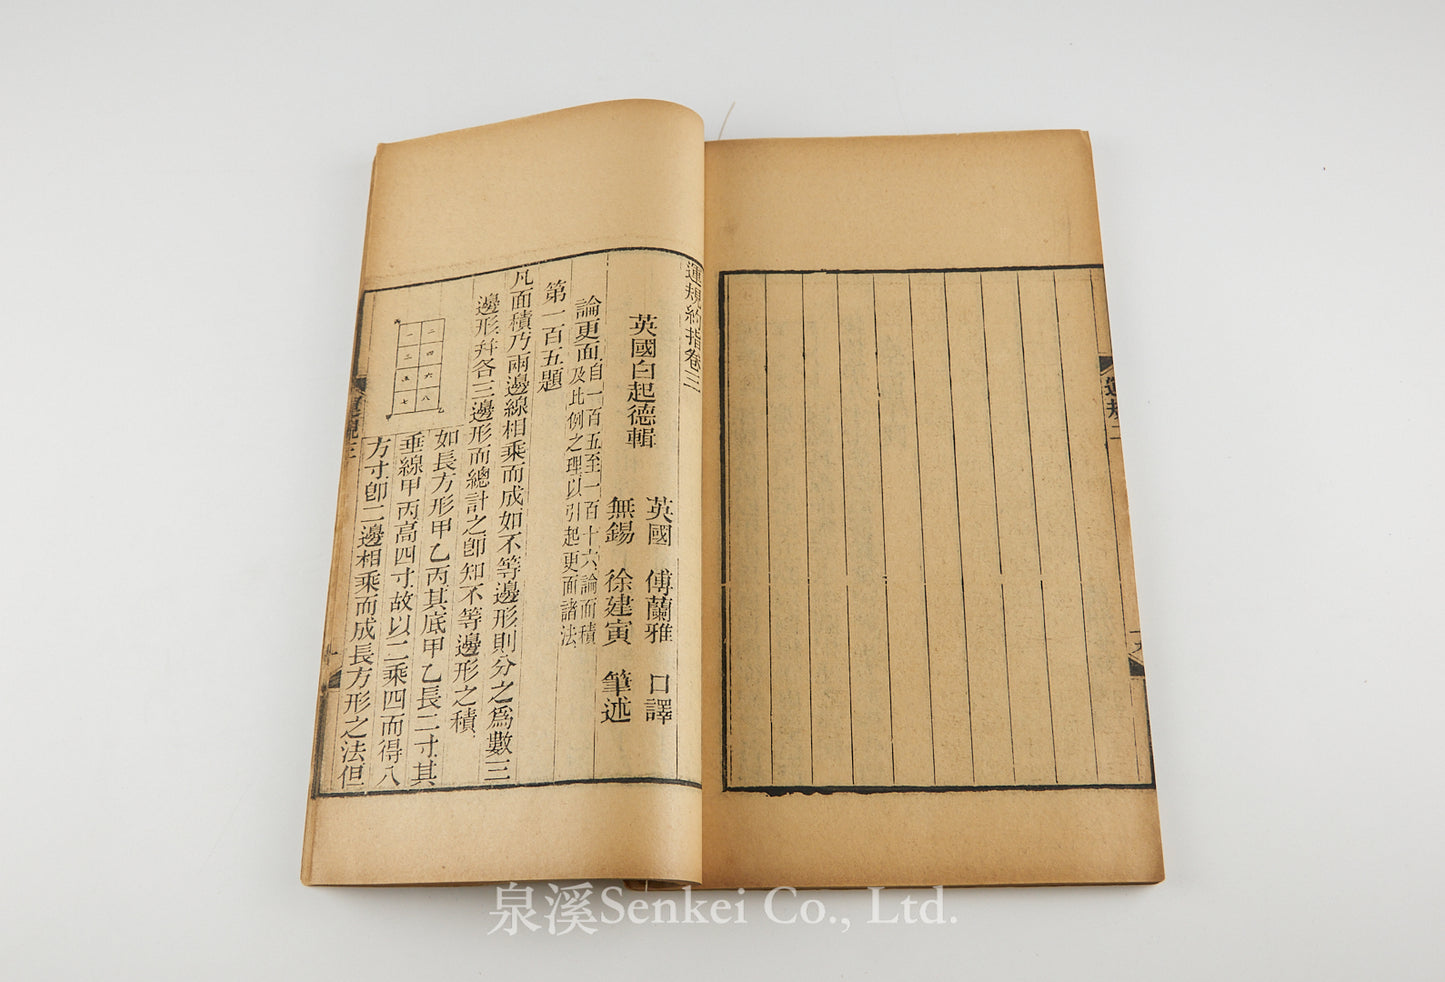 運規約指卷三
英國白起德輯
英國 傅蘭雅 口譯
無錫 徐建寅 筆述
論更面自一百五至一百十六論面積
及比例之理以引起更面諸法
第一百五題
凡面積乃兩邊線相乘而成如不等邊形則分之爲數三
邊形幷各三邊形而總計之卽知不等邊形之積
如長方形甲乙丙其底甲乙長二寸其
垂線甲丙高四寸故以二乘四而得八
方寸卽二邊相乘而成長方形之法但
二 一
四 三
六 五
八 七
運規三
運規二
泉溪Senkei Co., Ltd.